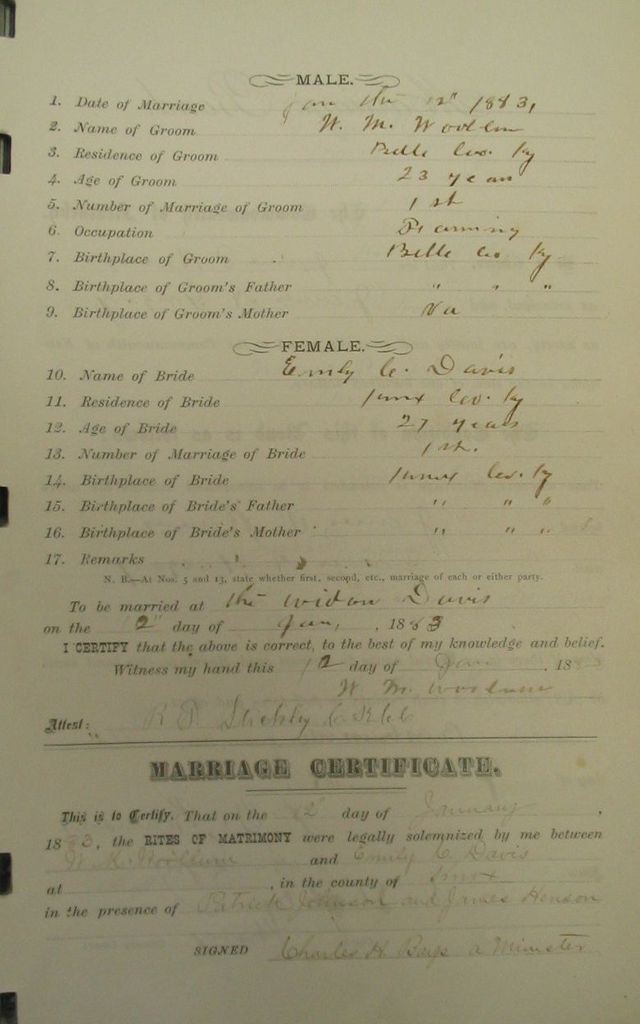 MALE.
1. Date of Marriage Jan the 12th 1883,
2. Name of Groom W. M. Woollum
3. Residence of Groom Belle Co. Ky
4. Age of Groom 23 years
5. Number of Marriage of Groom 1 st
6. Occupation Farming
7. Birthplace of Groom Belle Co Ky
8. Birthplace of Groom's Father " " "
9. Birthplace of Groom's Mother Va
FEMALE.
10. Name of Bride Emily C. Davis
11. Residence of Bride Knox Co. Ky
12. Age of Bride 27 years
13. Number of Marriage of Bride 1 st.
14. Birthplace of Bride Knox Co. Ky
15. Birthplace of Bride's Father " " "
16. Birthplace of Bride's Mother " " "
17. Remarks
N. B.—At Nos. 5 and 13, state whether first, second, etc., marriage of each or either party.
To be married at the widow Davis
on the 12 day of Jan, 1883
I CERTIFY that the above is correct, to the best of my knowledge and belief.
Witness my hand this 12 day of Jan, 1883
W. M. Woollum
Attest: R P
MARRIAGE CERTIFICATE.
This is to Certify. That on the 12 day of January,
1883, the RITES OF MATRIMONY were legally solemnized by me between
W. M. Woollum and Emily C Davis
at , in the county of Knox
in the presence of Patrick Johnson and James Henson
SIGNED Charles H Bays a Minister